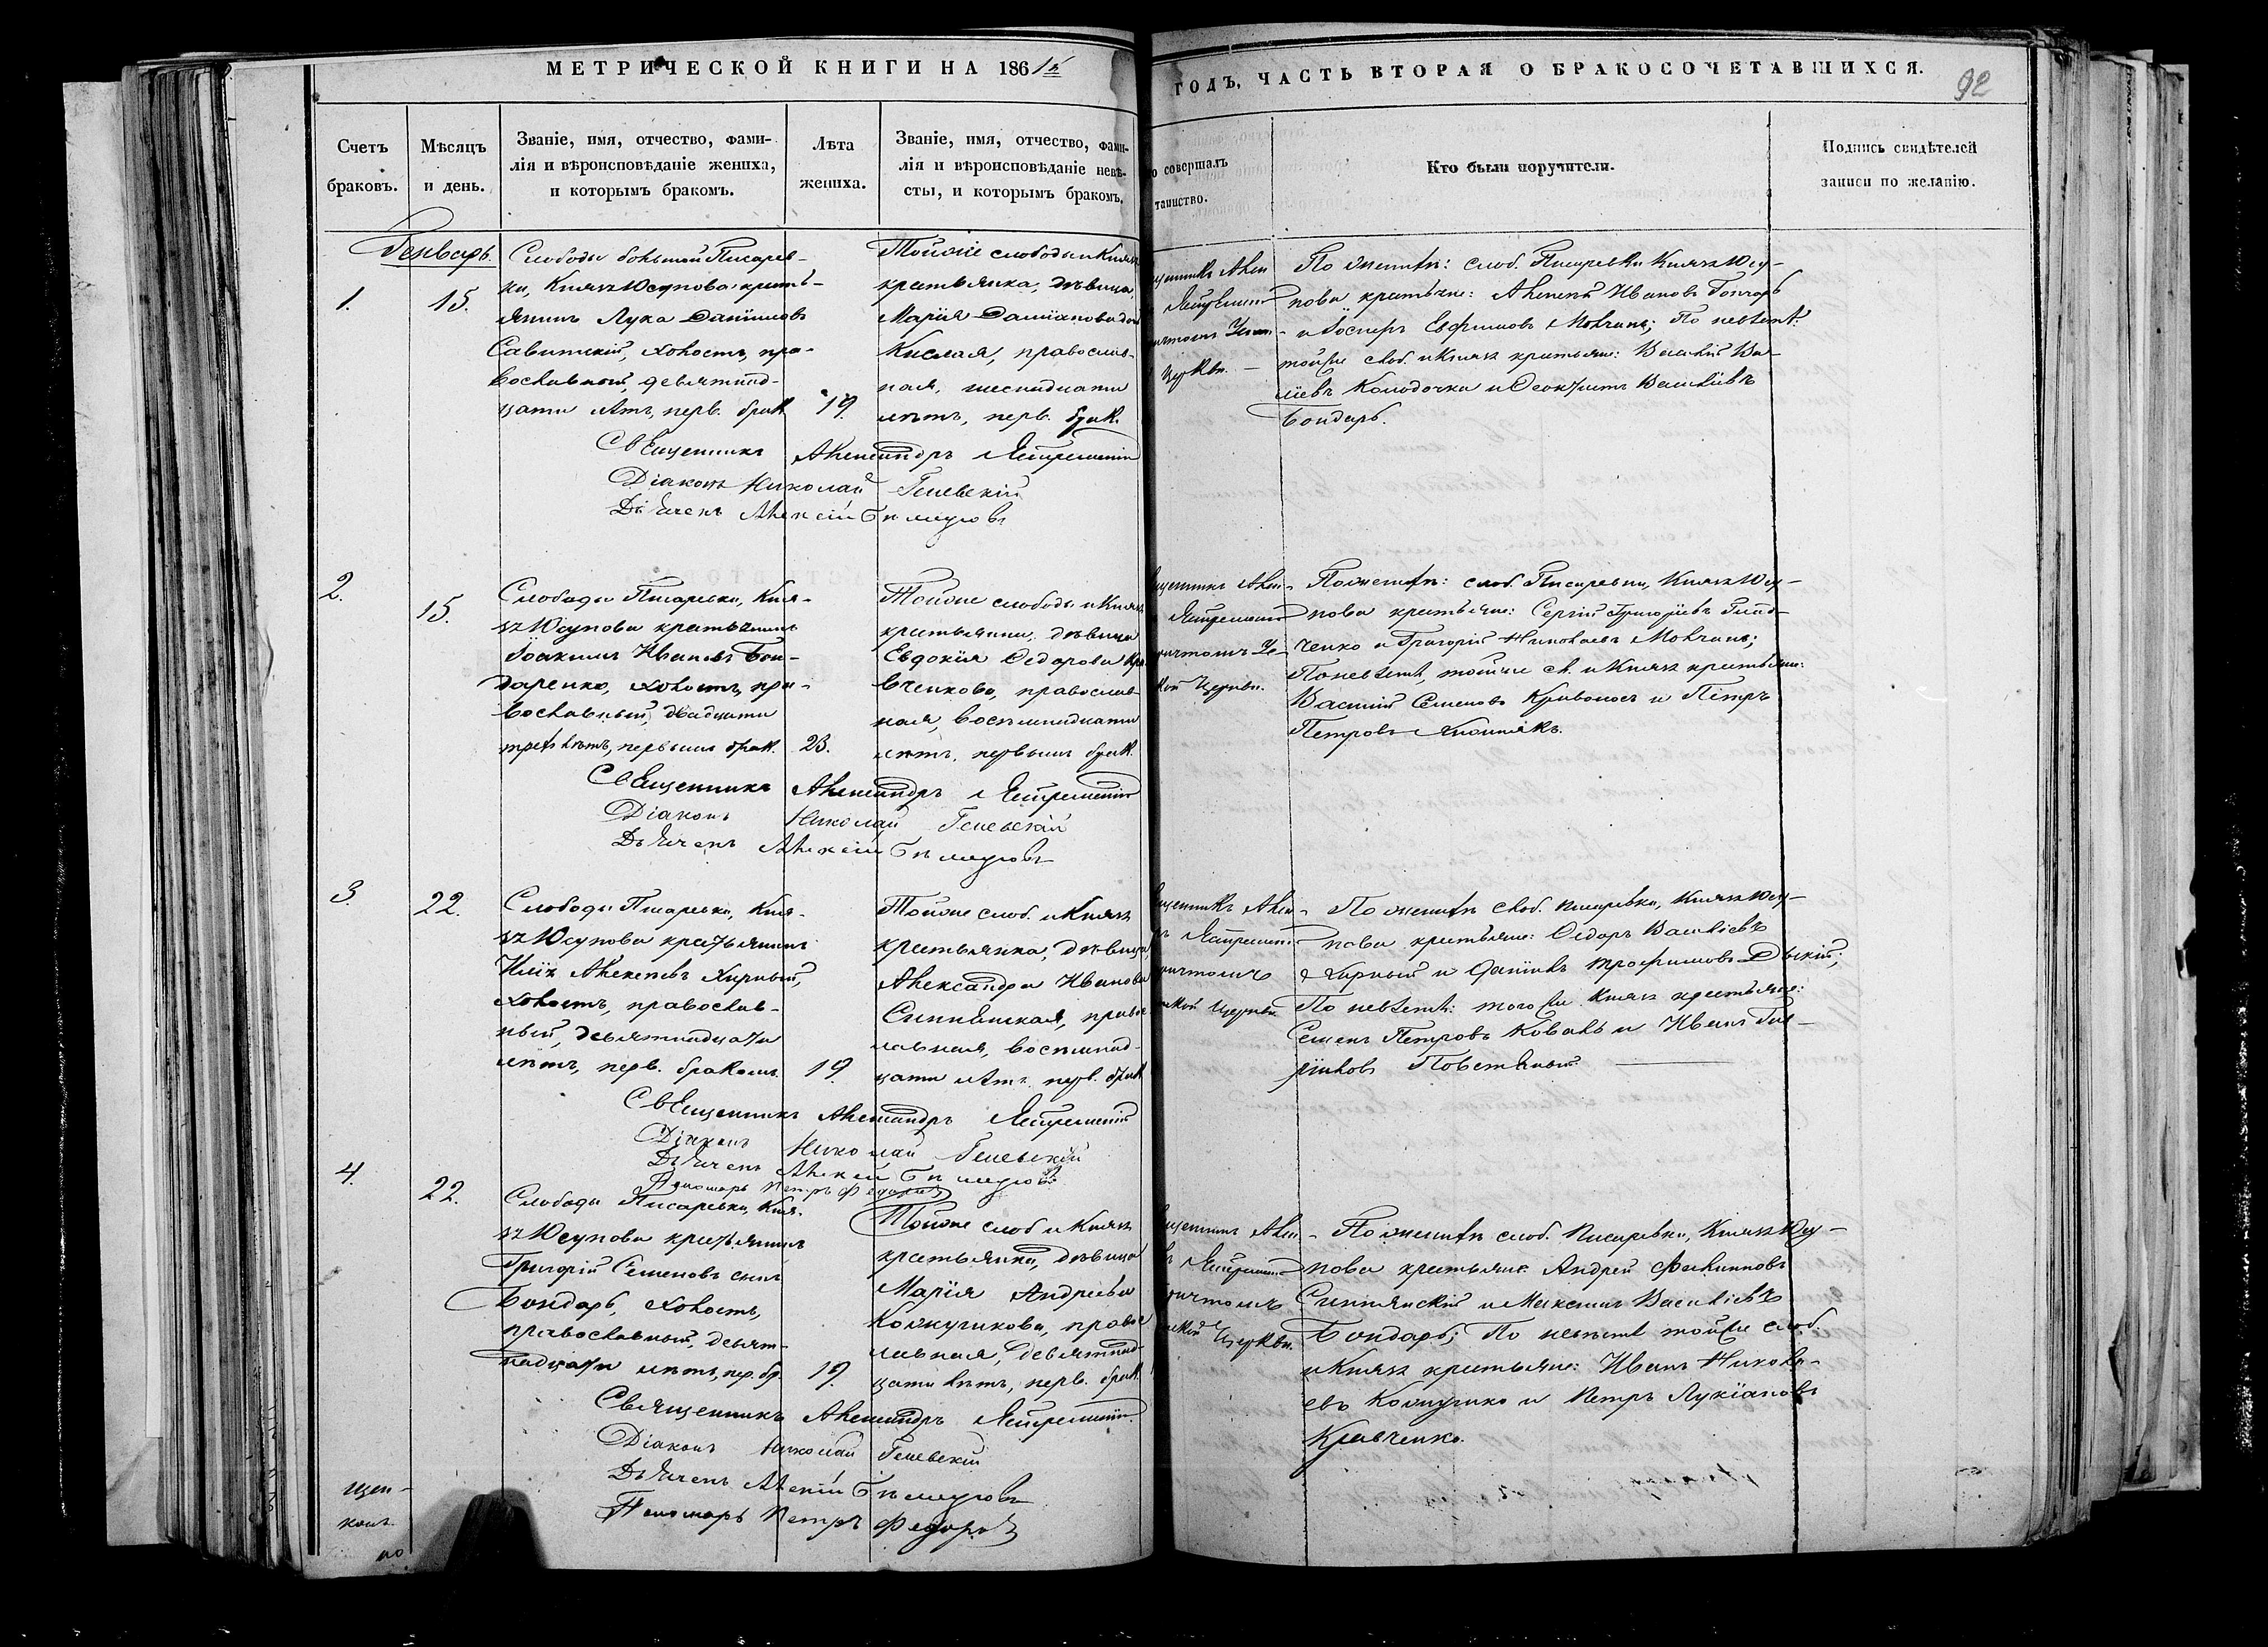 МЕТРИЧЕСКОЙ КНИГИ НА 1861й
ГОДЪ, ЧАСТЬ ВТОРАЯ О БРАКОСОЧЕТАВШИХСЯ.
92
Счетъ
браковъ.
Мѣсяцъ
и день.
Званіе, имя, отчество, фами-
лія и вѣроисповѣданіе жениха,
и которымъ бракомъ.
Лѣта
жениха.
Званіе, имя, отчество, фами-
лія и вѣроисповѣданіе невѣ-
сты, и которымъ бракомъ.
о совершалъ
таинство.
Кто были поручители.
Подпись свидѣтелей
записи по желанію.
Генварь.
1.
15.
Слободы большой Писарев-
ки, Князя Юсупова кресть-
янинъ Лука Даніиловъ
Савитскій, холостъ, пра-
вославный, девятнад-
цати лѣтъ, перв. брак.
19.
Тойже слободы и Князя
крестьянка, дѣвица,
Марія Даміанова
Кислая, православ-
ная, шеснадцати
лѣтъ, перв. брак.
Церкви.
По женихѣ: слоб. Писаревки Князя Юсу-
пова крестьяне: Алексѣй Ивановъ Гончаръ
и Евфимовъ Мовчанъ; По невѣстѣ:
тойже слоб. и Князя крестьяне: Василій Ва-
Колодочка и Василіевъ
Бондарь.
Священникъ Александръ Ястремскій
Діаконъ Николай
Дьячекъ Алексій
2.
15.
Слободы Писаревки, Кня-
зя Юсупова крестьянинъ
Іоакимъ Ивановъ Бон-
даренко, холостъ, пра-
вославный, двадцати
трехъ лѣтъ, первымъ брак.
23.
Тойже слободы и Князя
крестьянка, дѣвица
Евдокія Федорова Кра-
вченкова, православ-
ная, восемнадцати
лѣтъ, первымъ брак.
Церкви.
По женихѣ: слоб. Писаревки, Князя Юсу-
пова крестьяне: Сергій Григоріевъ
ченко и Григорій Николаевъ Мовчанъ;
По невѣстѣ, тойже сл. и Князя крестьяне:
Василій Семеновъ Кривоносъ и Петръ
Петровъ
Священникъ Александръ Ястремскій
Діаконъ Николай
Дьячекъ Алексій
3.
22.
Слободы Писаревки, Кня-
зя Юсупова крестьянинъ
Илія Алексѣевъ Жирный,
холостъ, православ-
ный, девятнадцати
лѣтъ, перв. бракомъ.
19.
Тойже слоб. и Князя
крестьянка, дѣвица
Александра Иванова
Синнянская, правос
лавная, восемнад-
цати лѣтъ перв. брак
Церкви
По женихѣ слоб. Писаревки, Князя Юсу-
пова крестьяне: Федоръ Василіевъ
Жирный и Даніилъ Трофимовъ Дикій;
По невѣстѣ: тогоже Князя крестьяне:
Семенъ Петровъ Коваль и Иванъ
Повстяный
Священникъ Александръ Ястремскій
Діаконъ Николай
Дьячекъ Алексій
Пономарь Петръ Федоровъ
4.
22.
Слободы Писаревки, Кня-
зя Юсупова крестьянинъ
Григорій Семеновъ сынъ
Бондарь, холостъ,
православный, девят-
надцати лѣтъ, пер. бр.
19.
Тойже слоб и Князя
крестьянка, дѣвица
Марія Андреева
Кожушкова, правос
лавная, девятнад-
цати лѣтъ, перв. брак.
Церкви.
По женихѣ слоб. Писаревки, Князя Юсу-
пова крестьяне: Андрей Филипповъ
Синнянскій и Максимъ Василіевъ
Бондарь; По невѣстѣ тойже слоб.
и Князя крестьяне: Иванъ Никола-
евъ и Петръ Лукіановъ
Кравченко.
Священникъ Александръ Ястремскій
Діаконъ Николай
Дьячекъ Алексій
Пономарь Петръ Федоровъ
щен-